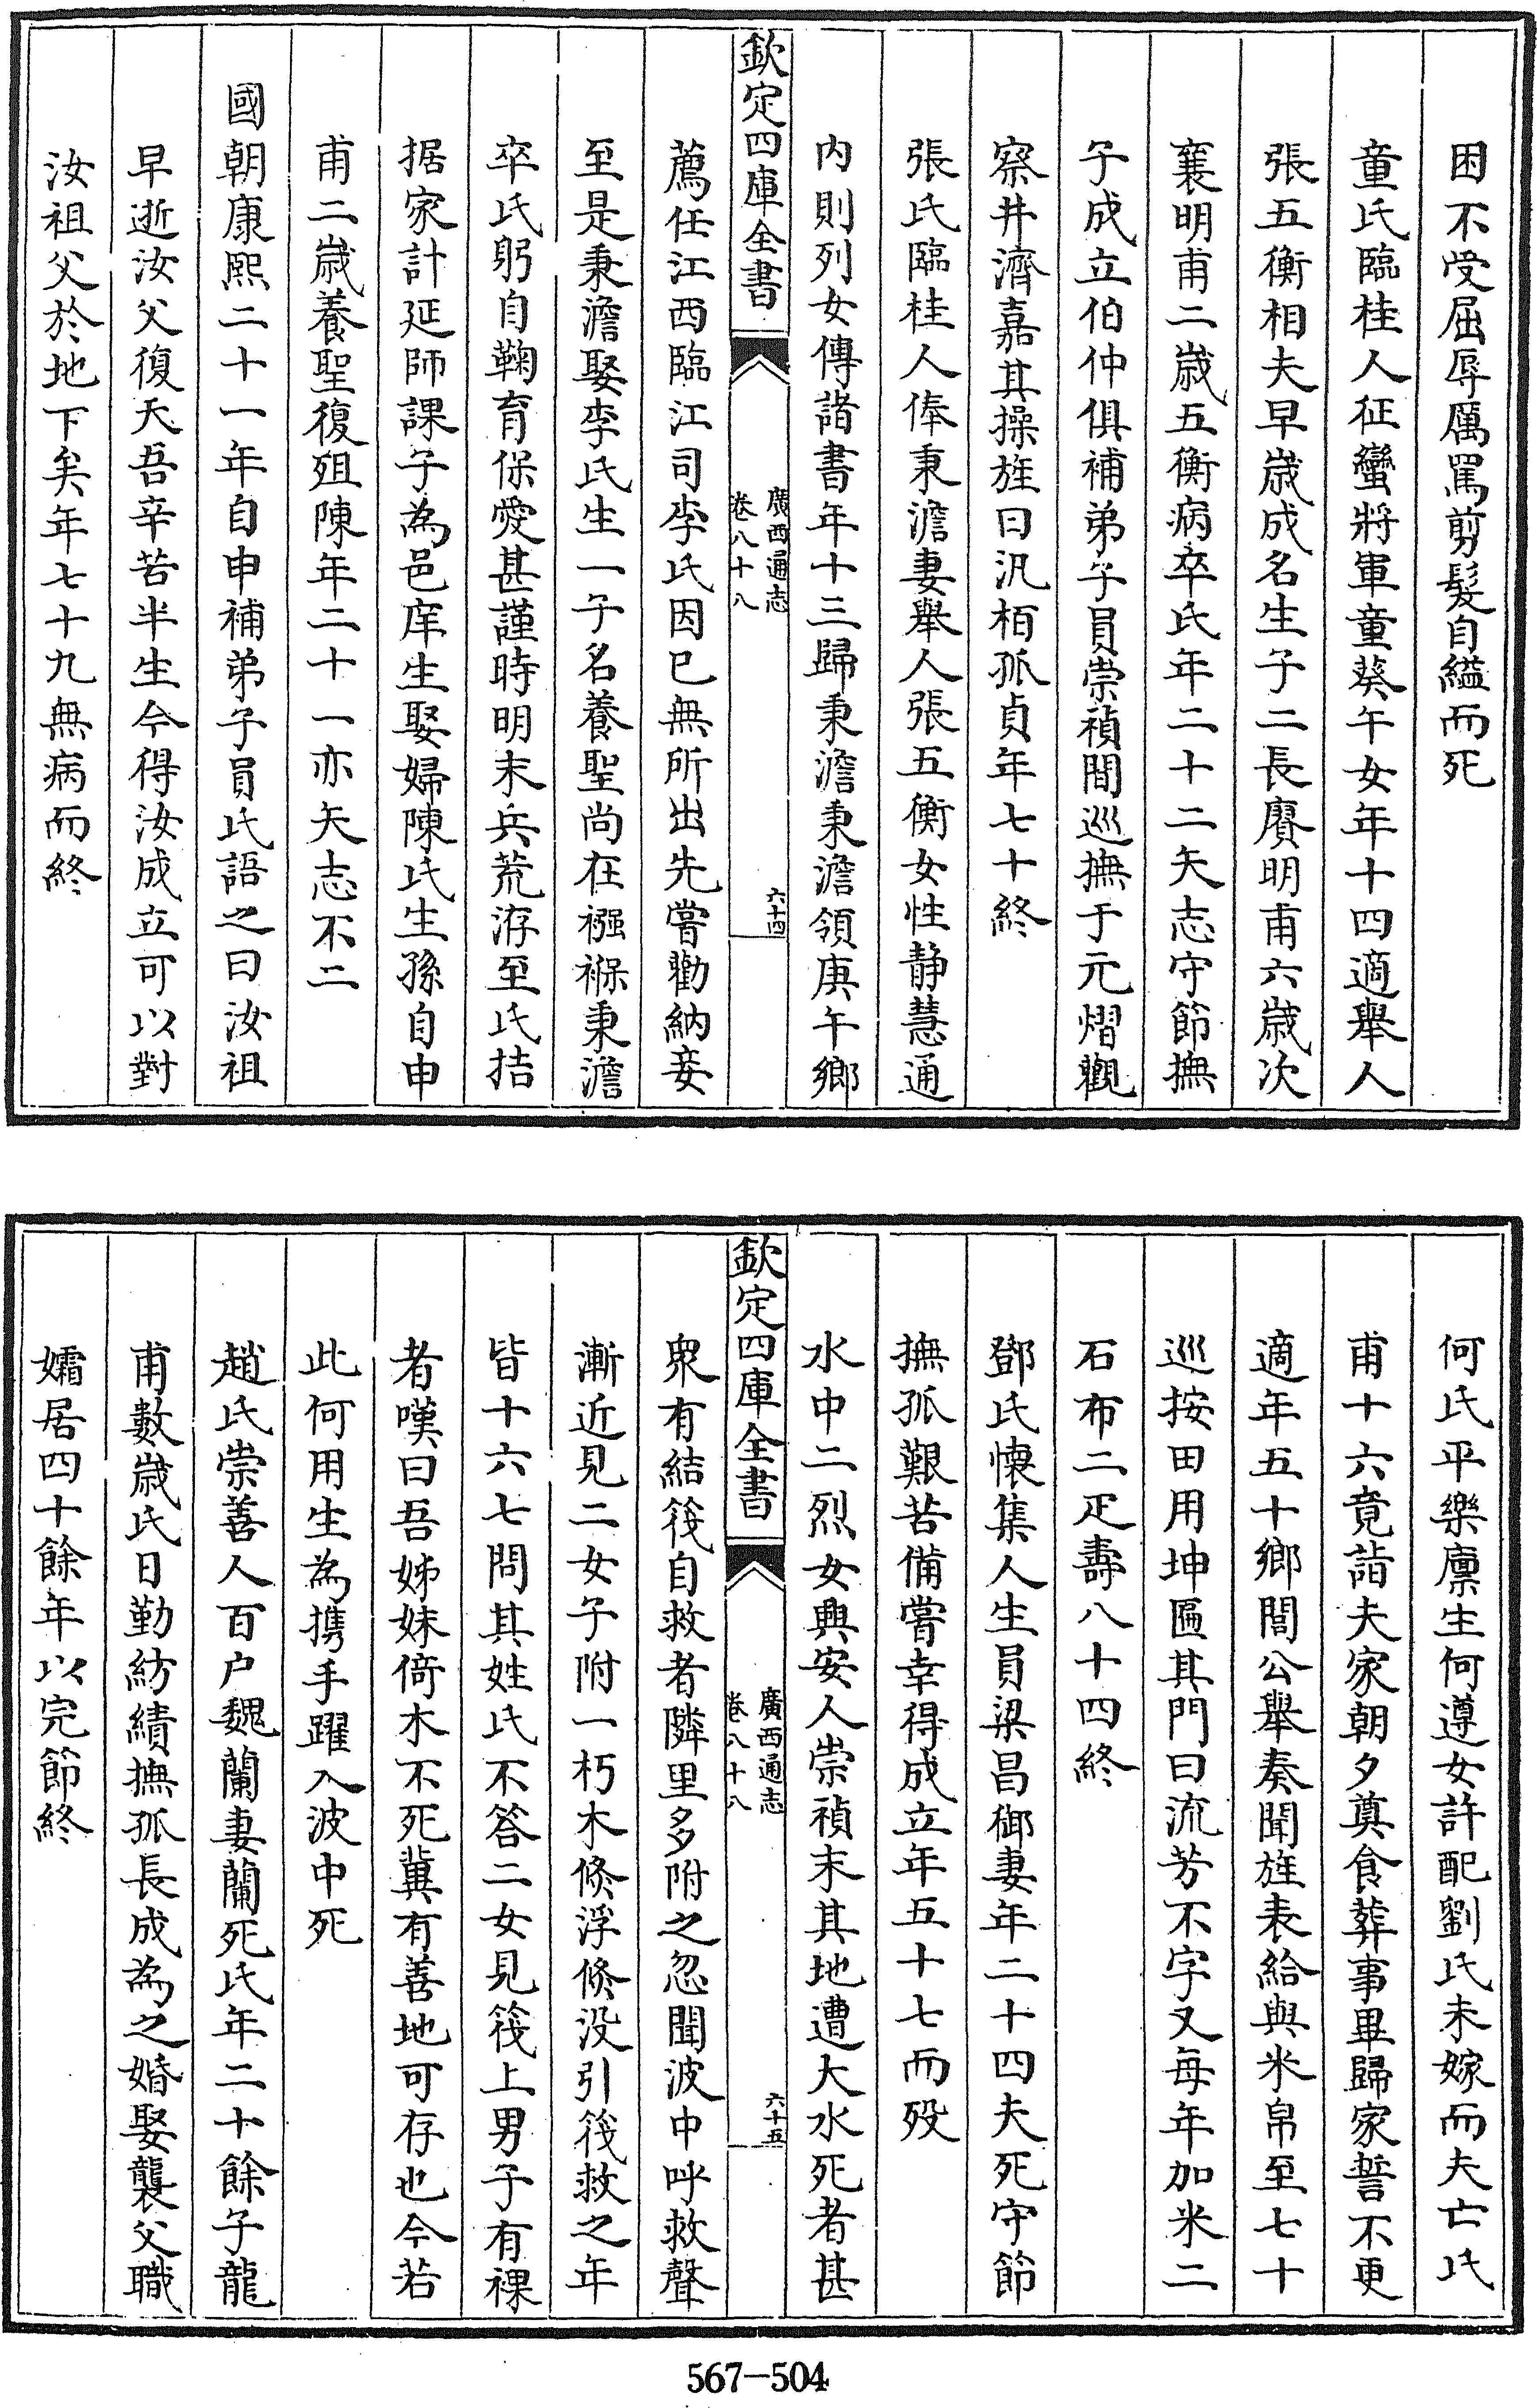 困不受屈辱厲罵剪髮自縊而死
童氏臨桂人征蠻將軍童葵午女年十四適舉人
張五衡相夫早歲成名生子二長賡明甫六歲次
襄明甫二歲五衡病卒氏年二十二矢志守節撫
子成立伯仲俱補弟子員崇禎間巡撫于元熠觀
察井濟嘉其操旌曰汎栢孤貞年七十終
張氏臨桂人俸秉澹妻舉人張五衡女性静慧通
內則列女傳諸書年十三歸秉澹秉澹領庚午鄉
欽定四庫全書
廣西通志
卷八十八
六十四
薦任江西臨江司李氏因已無所出先嘗勸納妾
至是秉澹娶李氏生一子名養聖尚在襁褓秉澹
卒氏躬自鞠育保愛甚謹時明末兵荒洊至氏拮
据家計延師課子為邑庠生娶婦陳氏生孫自申
甫二歲養聖復殂陳年二十一亦矢志不二
國朝康熙二十一年自申補弟子員氏語之曰汝祖
早逝汝父復夭吾辛苦半生今得汝成立可以對
汝祖父於地下矣年七十九無病而終
何氏平樂廪生何遵女許配劉氏未嫁而夫亡氏
甫十六竟詣夫家朝夕奠食葬事畢歸家誓不更
適年五十鄉閭公舉奏聞旌表給與米帛至七十
巡按田用坤匾其門曰流芳不字又每年加米二
石布二疋壽八十四終
鄧氏懷集人生員梁昌御妻年二十四夫死守節
撫孤艱苦備嘗幸得成立年五十七而歿
水中二烈女興安人崇禎末其地遭大水死者甚
欽定四庫全書
廣西通志
卷八十八
六十五
衆有結筏自救者隣里多附之忽聞波中呼救聲
漸近見二女子附一朽木倐浮倐没引筏救之年
皆十六七問其姓氏不答二女見筏上男子有裸
者嘆曰吾姊妹倚木不死冀有善地可存也今若
此何用生為携手躍入波中死
趙氏崇善人百户魏蘭妻蘭死氏年二十餘子龍
甫數歲氏日勤紡績撫孤長成為之婚娶襲父職
孀居四十餘年以完節終
567-504